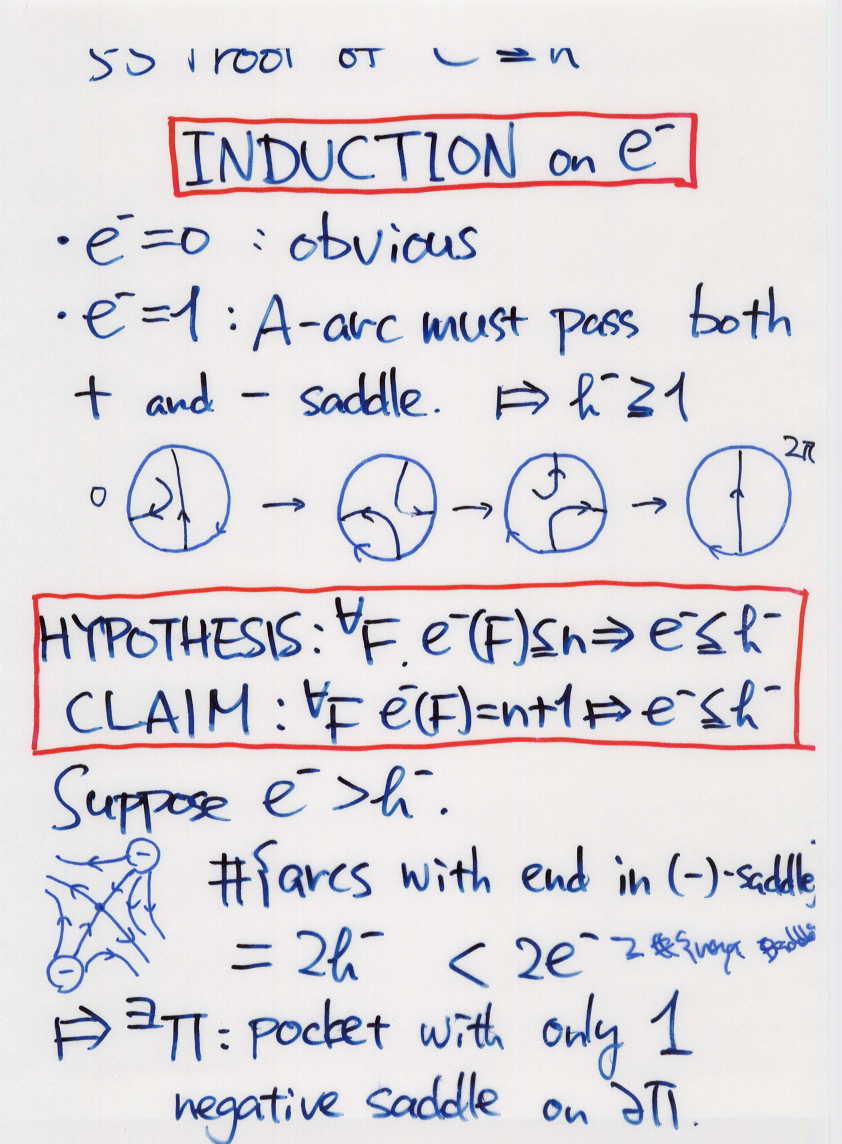 INDUCTION on e⁻
· e⁻=0 : obvious
· e⁻=1 : A-arc must pass both
+ and - saddle. ⇒ h⁻≧1
0 → → → 2π
HYPOTHESIS: ∀F. e⁻(F)≦n ⇒ e⁻≦h⁻
CLAIM : ∀F e⁻(F)=n+1 ⇒ e⁻≦h⁻
Suppose e⁻>h⁻.
#{arcs with end in (-)-saddle}
= 2h⁻ < 2e⁻
⇒ ∃Π: pocket with only 1
negative saddle on ∂Π.